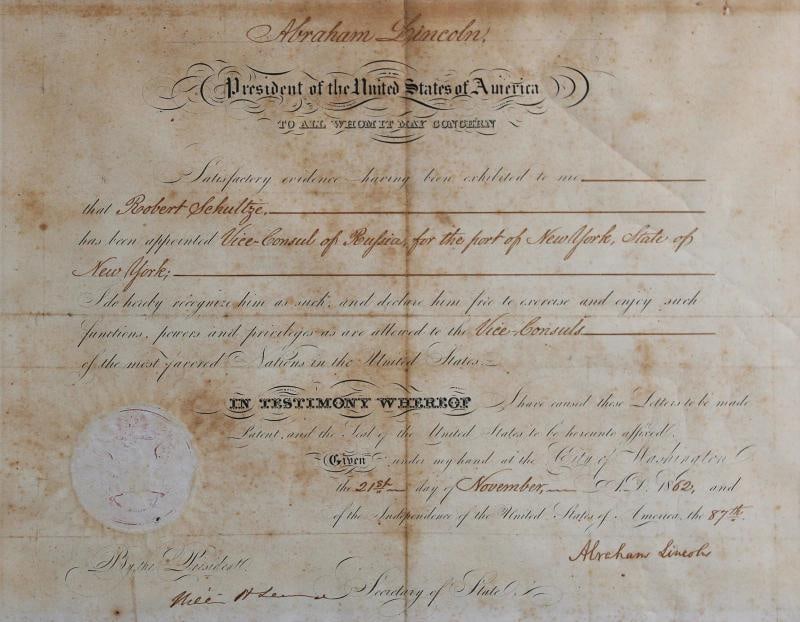 Abraham Lincoln,
President of the United States of America
TO ALL WHOM IT MAY CONCERN
Satisfactory evidence having been exhibited to me
that Robert Schultze,
has been appointed Vice-Consul of Russia, for the port of New York, State of
New York;
I do hereby recognize him as such, and declare him free to exercise and enjoy such
functions, powers and privileges as are allowed to the Vice-Consuls
of the most favored Nations in the United States.
IN TESTIMONY WHEREOF I have caused these Letters to be made
Patent, and the Seal of the United States to be hereunto affixed.
Given under my hand at the City of Washington
the 21st day of November, A.D. 1862, and
of the Independence of the United States of America, the 87th.
Abraham Lincoln
By the President
Secretary of State.